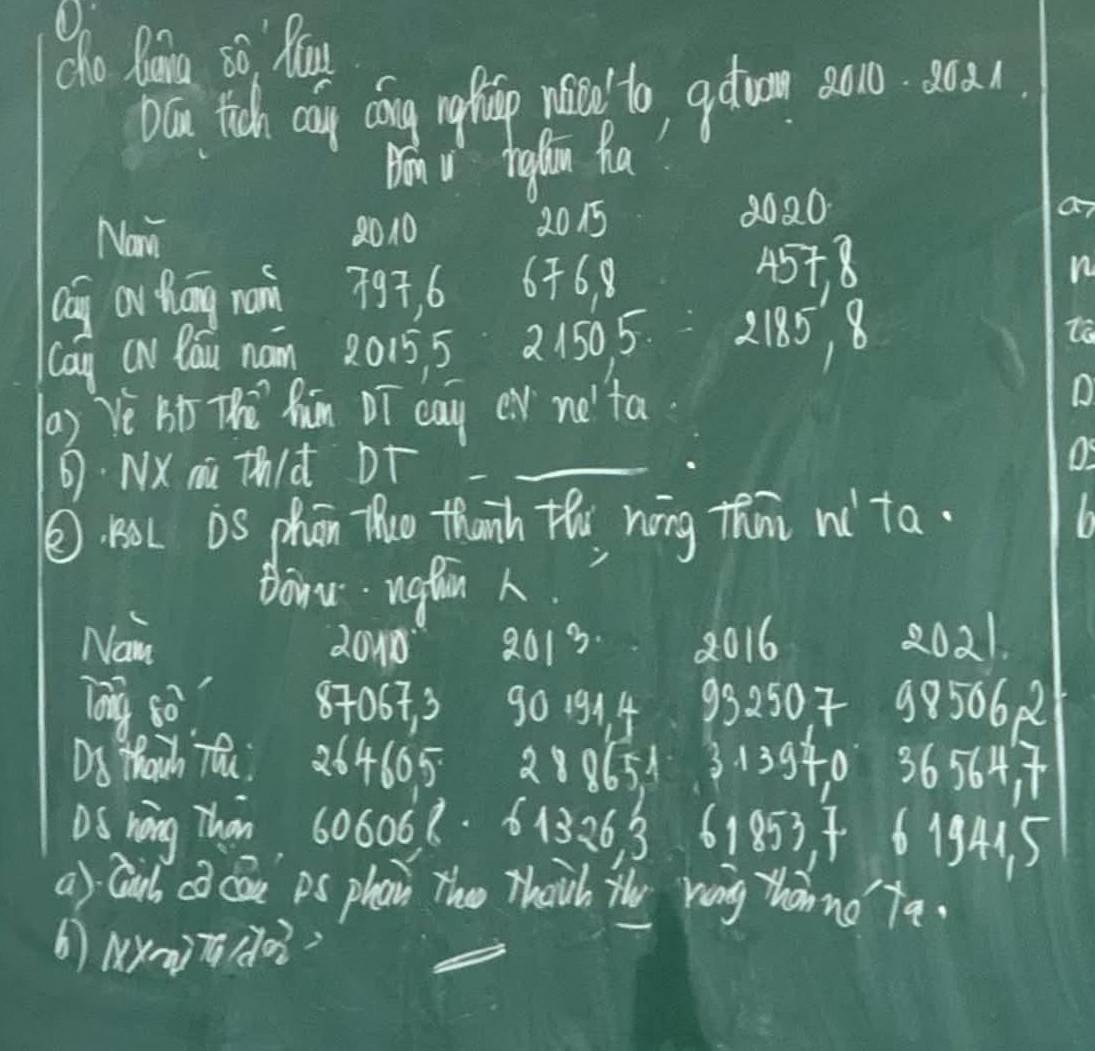 ①
Cho bảng số liệu
Diện tích cây công nghiệp nước ta, gđoạn 2010 - 2021.
Đơn vị nghìn ha
Năm 2010 2015 2020
Cây CN hàng năm 797,6 676,8 457,8
Cây CN lâu năm 2015,5 2150,5 2185,8
a) Vẽ BĐ thể hiện DT cây CN nc' ta.
b). NX sự th/đ DT
② .BSL DS phân theo thành thị, nông thôn nc' ta.
Đơn vị . nghìn
Năm 2010 2013 2016 2021
Tổng số 87067,3 90191,4 93250,7 98506,2
DS thành thị 26460,5 28865,1 31397,0 36564,7
DS nông thôn 60606,8 61326,3 61853,7 61941,5
a) Tính cơ cấu DS phân theo thành thị nông thôn nc' ta.
b) NX sự
a)
b